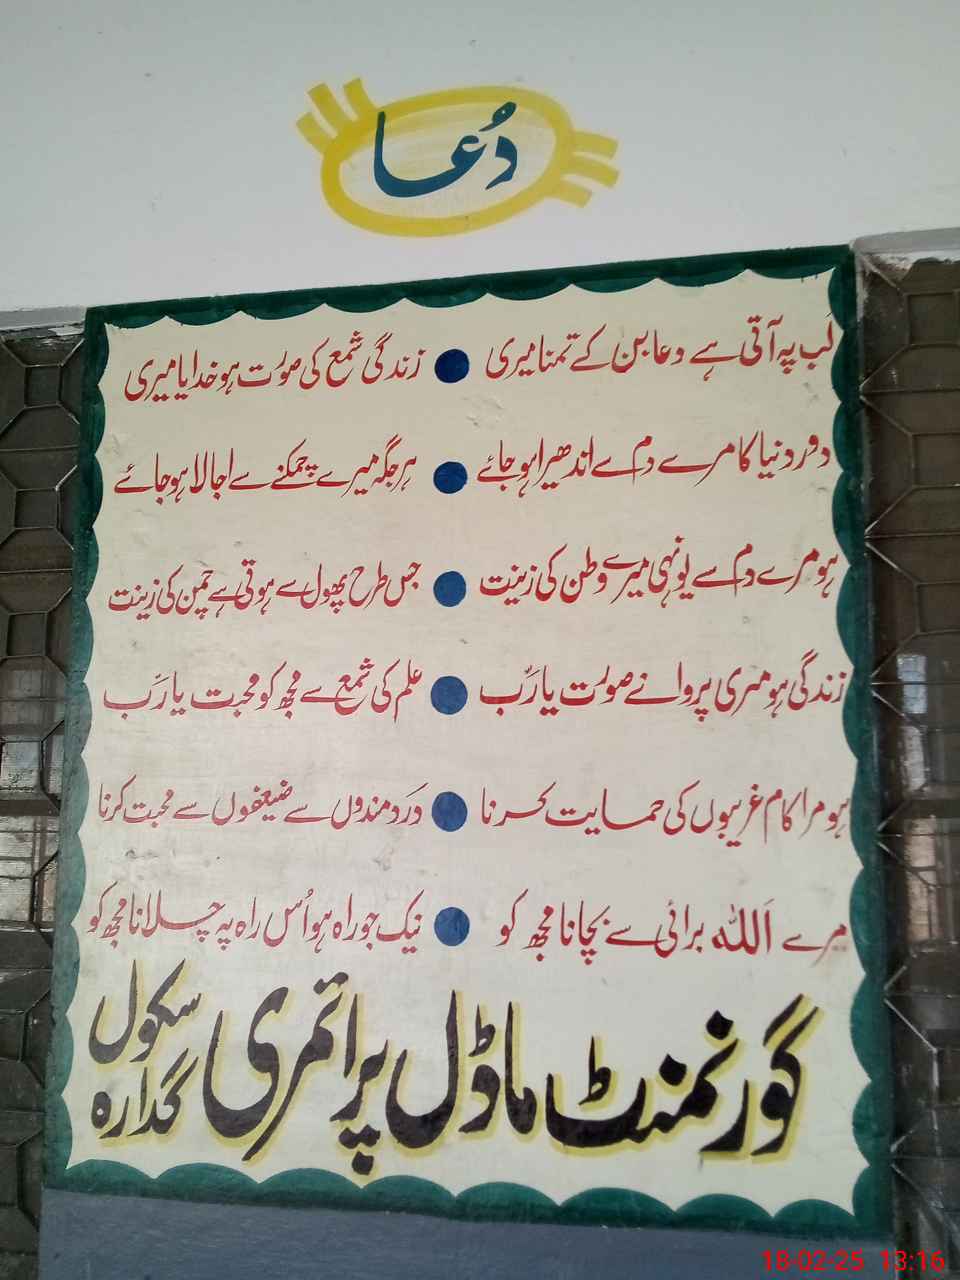 دُعا
لَب پہ آتی ہے دعا بن کے تمنا میری ● زندگی شمع کی صورت ہو خدایا میری
دور دنیا کا مرے دم سے اندھیرا ہو جائے ● ہر جگہ میرے چمکنے سے اجالا ہو جائے
ہو مرے دم سے یونہی میرے وطن کی زینت ● جس طرح پھول سے ہوتی ہے چمن کی زینت
زندگی ہو مری پروانے صورت یا رَبّ ● علم کی شمع سے مجھ کو محبت یا رَبّ
ہو مرا کام غریبوں کی حمایت کرنا ● دردمندوں سے ضیعفوں سے محبت کرنا
میرے اَللہ برائی سے بچانا مجھ کو ● نیک جو راہ ہو اُس راہ پہ چلانا مجھ کو
گورنمنٹ ماڈل پرائمری سکول گدارہ
18-02-25 13:16